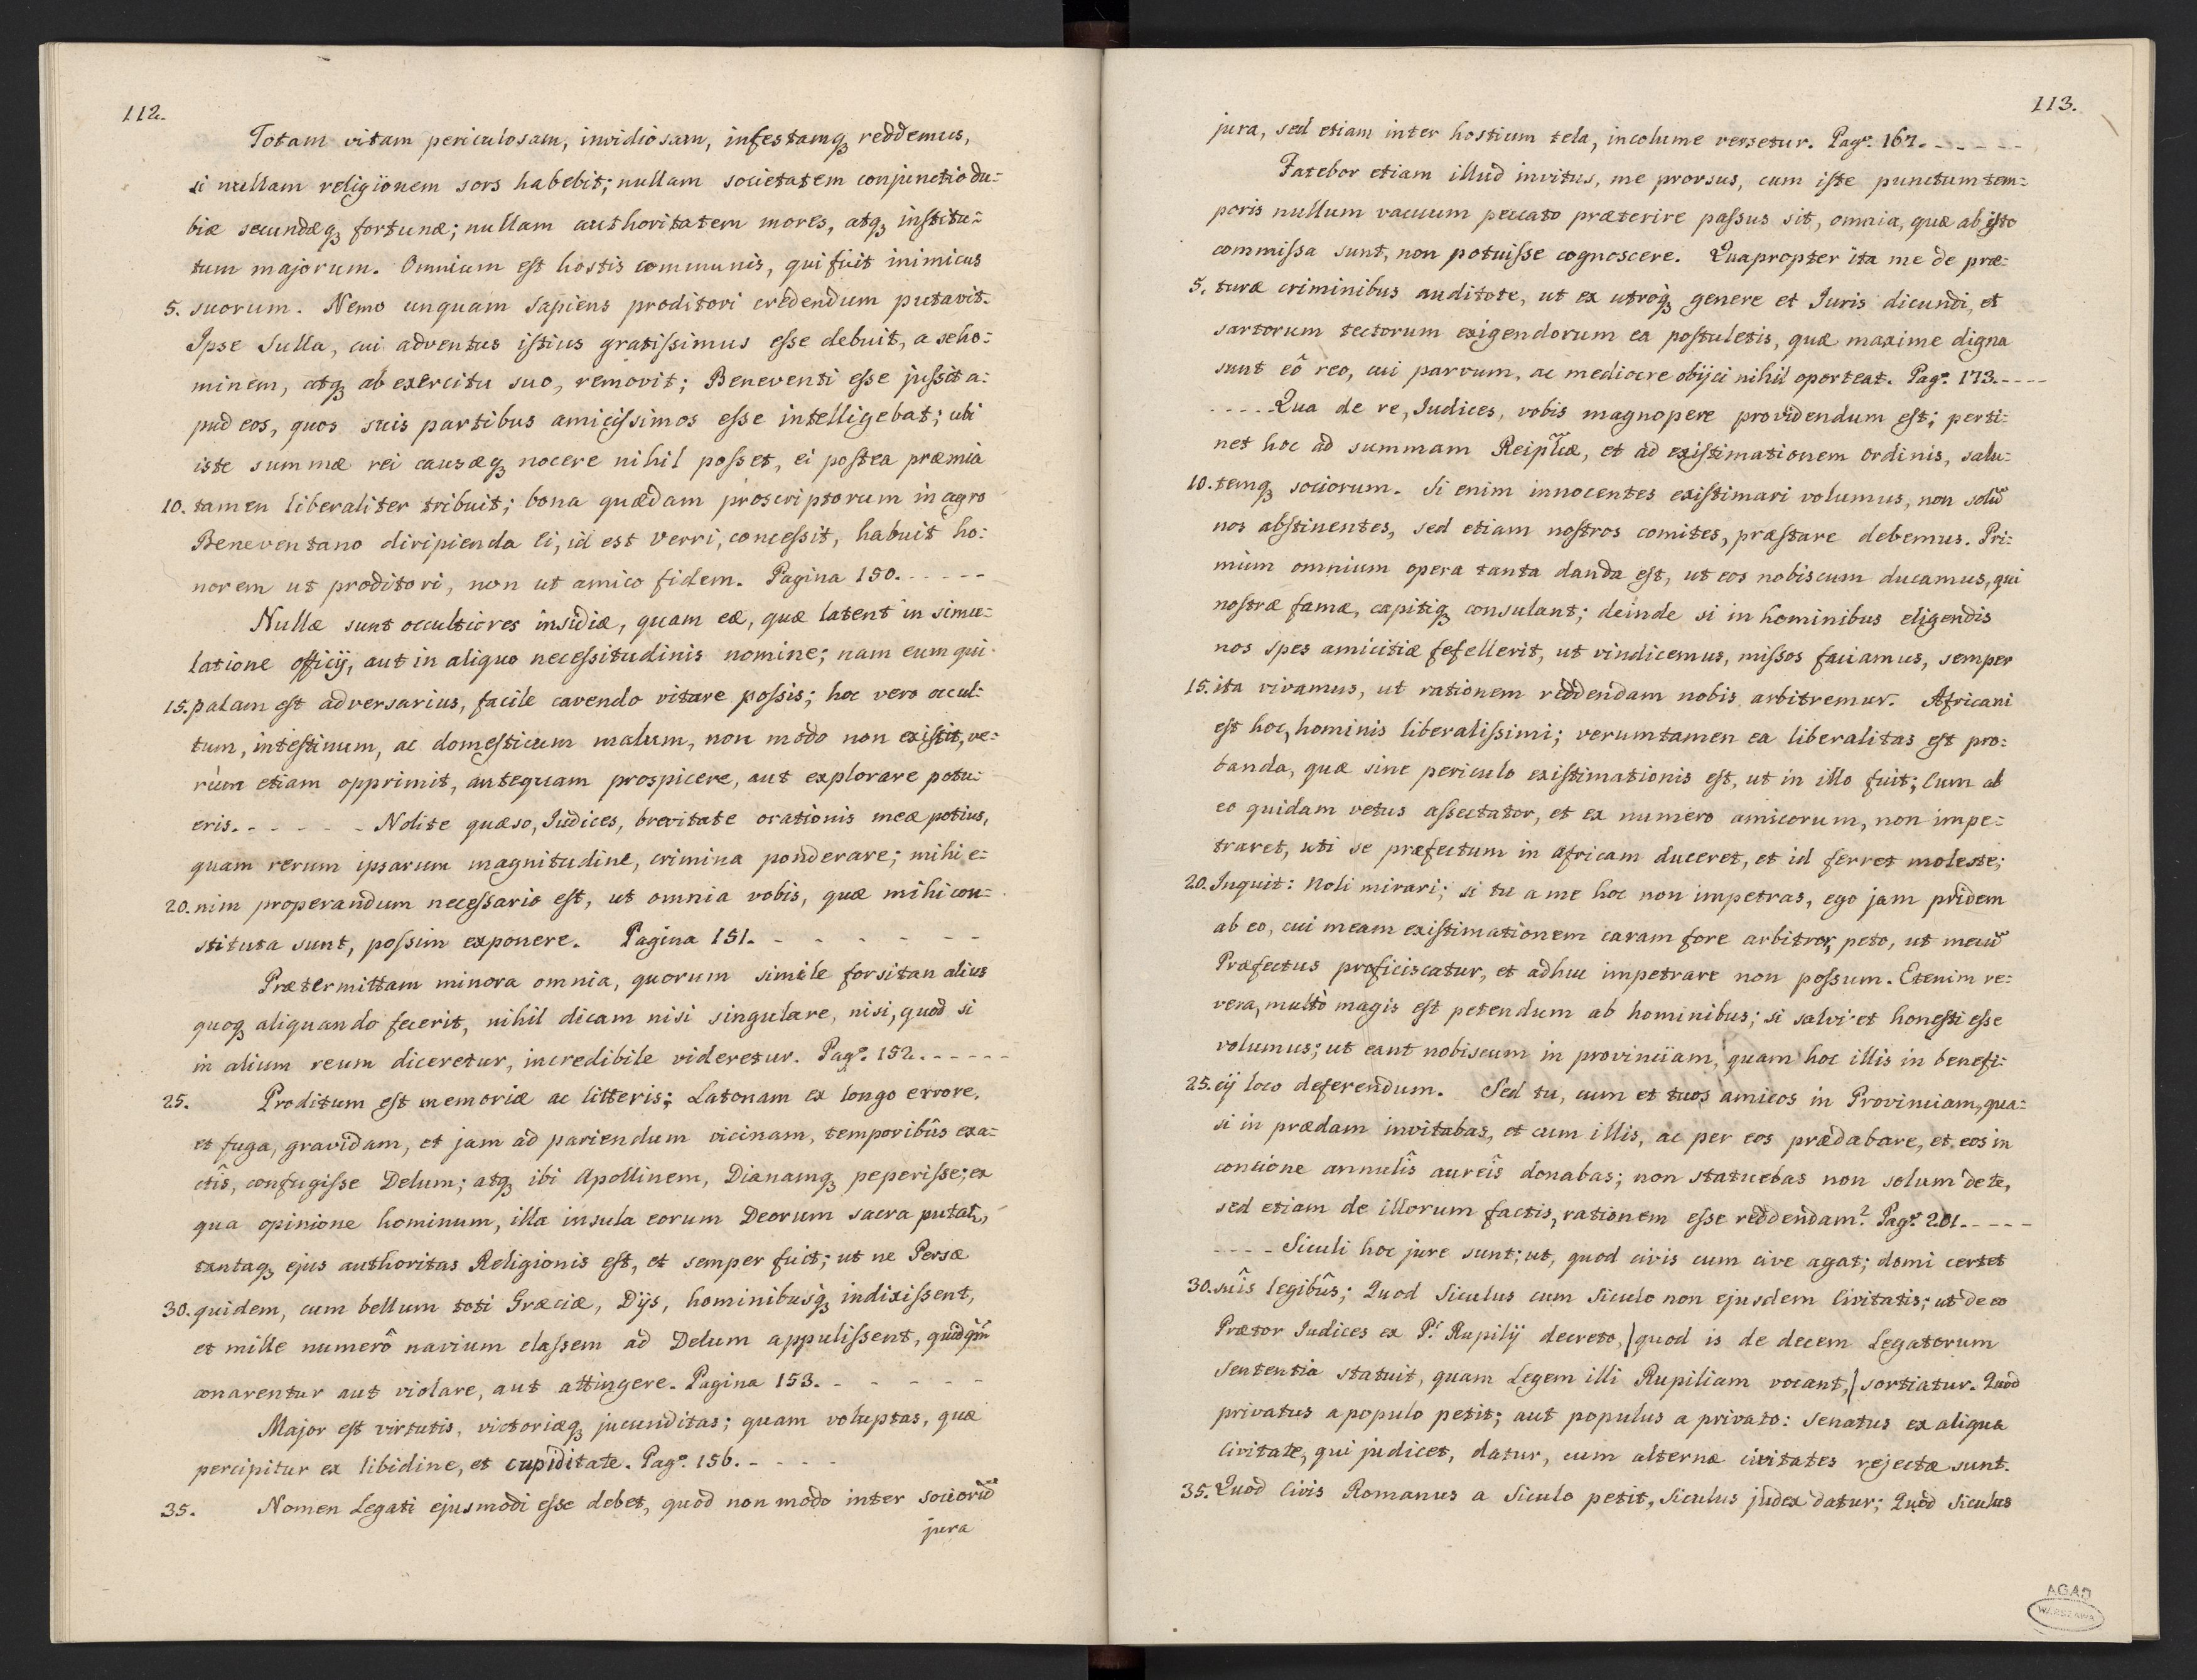 112.
Totam vitam periculosam, invidiosam, infestamqꝫ reddemus,
si nullam religionem sors habebit; nullam societatem conjunctio du=
biæ secundæqꝫ fortunæ; nullam authoritatem mores, atqꝫ institu=
tum majorum. Omnium est hostis communis, qui fuit inimicus
5. suorum. Nemo unquam sapiens proditori credendum putavit.
Ipse Sulla, cui adventus istius gratissimus esse debuit, a se ho=
minem, atqꝫ ab exercitu suo, removit; Beneventi esse jussit a=
pud eos, quos suis partibus amicissimos esse intelligebat; ubi
iste summæ rei causæqꝫ nocere nihil posset, ei postea præmia
10. tamen liberaliter tribuit; bona quædam proscriptorum in agro
Beneventano diripienda Ei, id est Verri, concessit, habuit ho=
norem ut proditori, non ut amico fidem. Pagina 150. - - - - -
Nullæ sunt occultiores insidiæ, quam eæ, quæ latent in simu=
latione officij, aut in aliquo necessitudinis nomine; nam eum qui
15. palam est adversarius, facile cavendo vitare possis; hoc vero occul=
tum, intestinum, ac domesticum malum, non modo non existit, ve=
rùm etiam opprimit, antequam prospicere, aut explorare potu=
eris. - - - - - Nolite quæso, Iudices, brevitate orationis meæ potius,
quam rerum ipsarum magnitudine, crimina ponderare; mihi e=
20. nim properandum necessario est, ut omnia vobis, quæ mihi con=
stituta sunt, possim exponere. Pagina 151. - - - - - -
Prætermittam minora omnia, quorum simile forsitan alius
quoqꝫ aliquando fecerit, nihil dicam nisi singulare, nisi, quod si
in alium reum diceretur, incredibile videretur. Pagᵃ. 152. - - - - - -
25. Proditum est memoriæ ac litteris; Latonam ex longo errore,
et fuga, gravidam, et jam ad pariendum vicinam, temporibûs exa=
ctîs, confugisse Delum; atqꝫ ibi Apollinem, Dianamqꝫ peperisse; ex
qua opinione hominum, illa insula eorum Deorum sacra putatr,
tantaqꝫ ejus authoritas Religionis est, et semper fuit; ut ne Persæ
30. quidem, cum bellum toti Græciæ, Dijs, hominibusqꝫ indixissent,
et mille numerô navium classem ad Delum appulissent, quidqũm
conarentur aut violare, aut attingere. Pagina 153. - - - - -
Major est virtutis, victoriæqꝫ jucunditas; quam voluptas, quæ
percipitur ex libidine, et cupiditate. Pagᵃ. 156. - - - -
35. Nomen Legati ejusmodi esse debet, quod non modo inter sociorũ
jura
113.
jura, sed etiam inter hostium tela, incolume versetur. Pagᵃ. 167. - - - - -
Fatebor etiam illud invitus, me prorsus, cum iste punctum tem=
poris nullum vacuum peccato præterire passus sit, omnia, quæ ab isto
commissa sunt, non potuisse cognoscere. Quapropter ita me de præ=
5. turæ criminibus auditote, ut ex utroqꝫ genere et Iuris dicundi, et
sartorum tectorum exigendorum ea postuletis, quæ maxime digna
sunt eô reo, cui parvum, ac mediocre obijci nihil oporteat. Pagᵃ. 173. - - - -
- - - - Qua de re, Iudices, vobis magnopere providendum est; perti=
net hoc ad summam Reipl̃cæ, et ad existimationem ordinis, salu=
10. temqꝫ sociorum. Si enim innocentes existimari volumus, non solũ
nos abstinentes, sed etiam nostros comites, præstare debemus. Pri=
mùm omnium opera tanta danda est, ut eos nobiscum ducamus, qui
nostræ famæ, capitiqꝫ consulant; deinde si in hominibus eligendis
nos spes amicitiæ fefellerit, ut vindicemus, missos faciamus, semper
15. ita vivamus, ut rationem reddendam nobis arbitremur. Africani
est hoc, hominis liberalissimi; verumtamen ea liberalitas est pro=
banda, quæ sine periculo existimationis est, ut in illo fuit; Cum ab
eo quidam vetus assectator, et ex numero amicorum, non impe=
traret, uti se præfectum in Africam duceret, et id ferret moleste;
20. Inquit: Noli mirari; si tu a me hoc non impetras, ego jam pridem
ab eo, cui meam existimationem caram fore arbitror, peto, ut mecũ
Præfectus proficiscatur, et adhuc impetrare non possum. Etenim re=
vera, multò magis est petendum ab hominibus; si salvi et honesti esse
volumus; ut eant nobiscum in provinciam, quam hoc illis in benefi=
25. cij loco deferendum. Sed tu, cum et tuos amicos in Provinciam, qua=
si in prædam invitabas, et cum illis, ac per eos prædabare, et eos in
concione annulîs aureîs donabas; non statuebas non solum de te,
sed etiam de illorum factis, rationem esse reddendam? Pagᵃ. 201. - - - - -
- - - - Siculi hoc jure sunt; ut, quod civis cum cive agat; domi certet
30. suîs legibûs; Quod Siculus cum Siculo non ejusdem Civitatis; ut de eo
Prætor Iudices ex P: Rupilij decreto, / quod is de decem Legatorum
Sententia statuit, quam Legem illi Rupiliam vocant, / sortiatur. Quod
privatus a populo petit; aut populus a privato: Senatus ex aliqua
Civitate, qui judicet, datur, cum alternæ civitates rejectæ sunt.
35. Quod Civis Romanus a Siculo petit, Siculus judex datur; Quod Siculus
AGAD
WARSZAWA